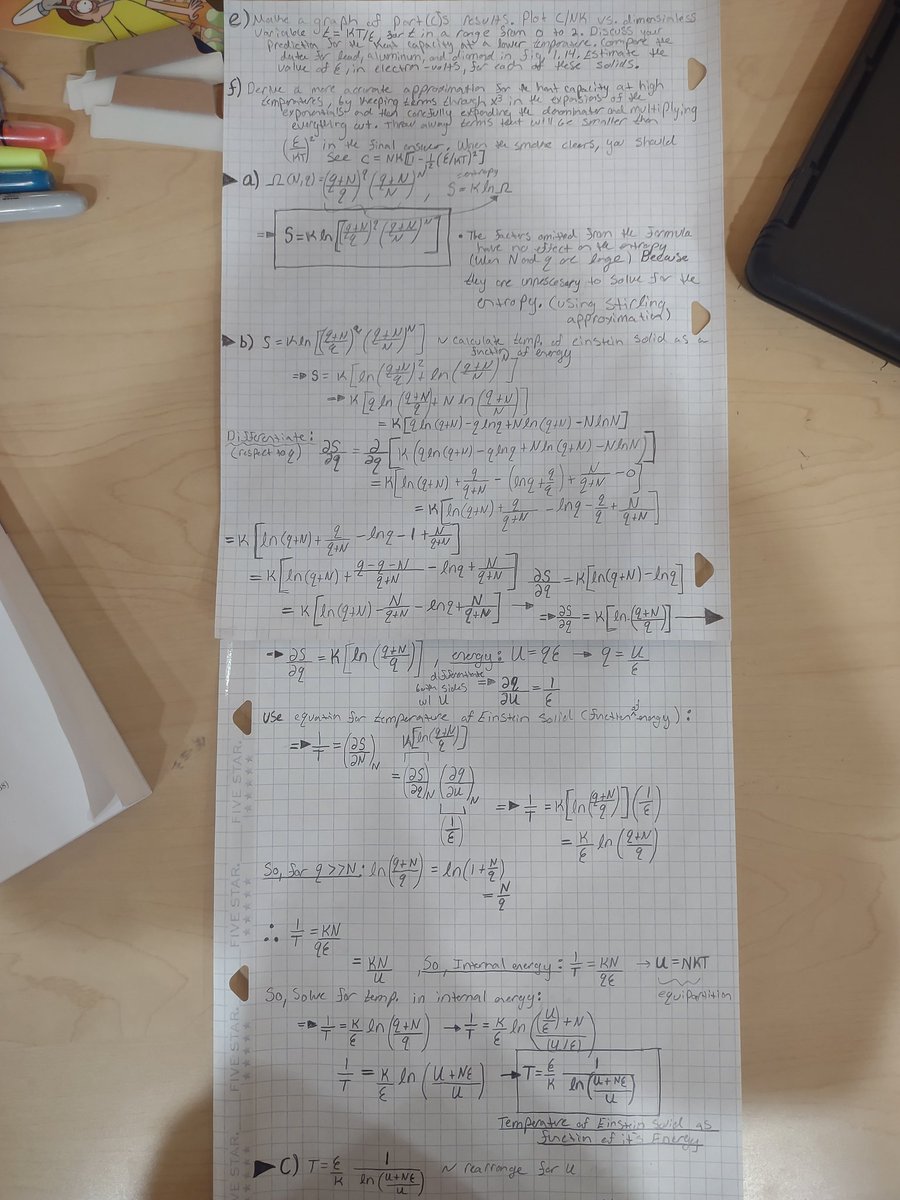 e) Make a graph of part (c)'s results. Plot C/NK vs. dimensionless
variable t = KT/ε, for t in a range from 0 to 2. Discuss your
prediction for the heat capacity at a lower temperature. Compare the
data for lead, aluminum, and diamond in fig 1.14. Estimate the
value of ε, in electron-volts, for each of these solids.
f) Derive a more accurate approximation for the heat capacity at high
temperatures, by keeping terms through x³ in the expansions of the
exponentials and then carefully expanding the denominator and multiplying
everything out. Throw away terms that will be smaller than
(ε/KT)² in the final answer. When the smoke clears, you should
see C = NK[1 - 1/12(ε/KT)²]
a) Ω(N,q) = ((q+N)/q)^q ((q+N)/N)^N , entropy S = K ln Ω
⇒ S = K ln[((q+N)/q)^q ((q+N)/N)^N]
• The factors omitted from the formula
have no effect on the entropy
(When N and q are large) Because
they are unnescesary to solve for the
entropy. (using Stirling
approximation)
b) S = K ln[((q+N)/q)^q ((q+N)/N)^N] ~ calculate temp. of einstein solid as a
function of energy
⇒ S = K[ln((q+N)/q)^q + ln((q+N)/N)^N]
→ K[q ln((q+N)/q) + N ln((q+N)/N)]
= K[q ln(q+N) - q ln q + N ln(q+N) - N ln N]
Differentiate:
(respect to q) ∂S/∂q = ∂/∂q[K(q ln(q+N) - q ln q + N ln(q+N) - N ln N)]
= K[ln(q+N) + q/(q+N) - (ln q + q/q) + N/(q+N) - 0]
= K[ln(q+N) + q/(q+N) - ln q - q/q + N/(q+N)]
= K[ln(q+N) + q/(q+N) - ln q - 1 + N/(q+N)]
= K[ln(q+N) + (q-q-N)/(q+N) - ln q + N/(q+N)] ∂S/∂q = K[ln(q+N) - ln q]
= K[ln(q+N) - N/(q+N) - ln q + N/(q+N)] → ⇒ ∂S/∂q = K[ln((q+N)/q)] →
→ ∂S/∂q = K[ln((q+N)/q)] , energy: U = qε → q = U/ε
differentiate
both sides
w/ U ⇒ ∂q/∂U = 1/ε
Use equation for temperature of Einstein solid (function of energy):
K[ln((q+N)/q)]
⇒ 1/T = (∂S/∂N)_N
= (∂S/∂q)_N (∂q/∂U)_N ⇒ 1/T = K[ln((q+N)/q)](1/ε)
(1/ε) = K/ε ln((q+N)/q)
So, for q >> N: ln((q+N)/q) = ln(1 + N/q)
= N/q
∴ 1/T = KN/qε
= KN/U , So, Internal energy: 1/T = KN/qε → U = NKT
equipartition
So, Solve for temp. in internal energy:
⇒ 1/T = K/ε ln((q+N)/q) → 1/T = K/ε ln(((U/ε)+N)/(U/ε))
1/T = K/ε ln((U+Nε)/U) → T = ε/K 1/ln((U+Nε)/U)
Temperature of Einstein Solid as
function of it's Energy
c) T = ε/K 1/ln((U+Nε)/U) ~ rearrange for U
FIVE STAR.
FIVE STAR.
FIVE STAR.
FIVE STAR.